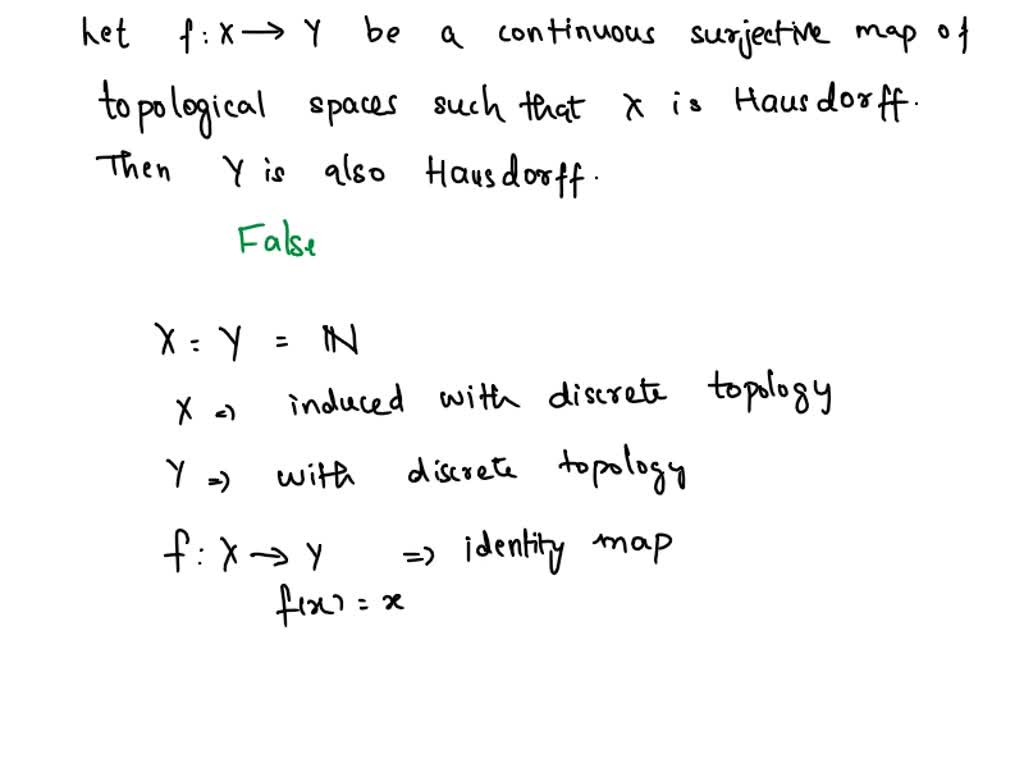 Let f : X → Y be a continuous surjective map of
topological spaces such that X is Hausdorff.
Then Y is also Hausdorff.
False
X = Y = ℕ
X ⇒ induced with discrete topology
Y ⇒ with discrete topology
f : X → Y ⇒ identity map
f(x) = x